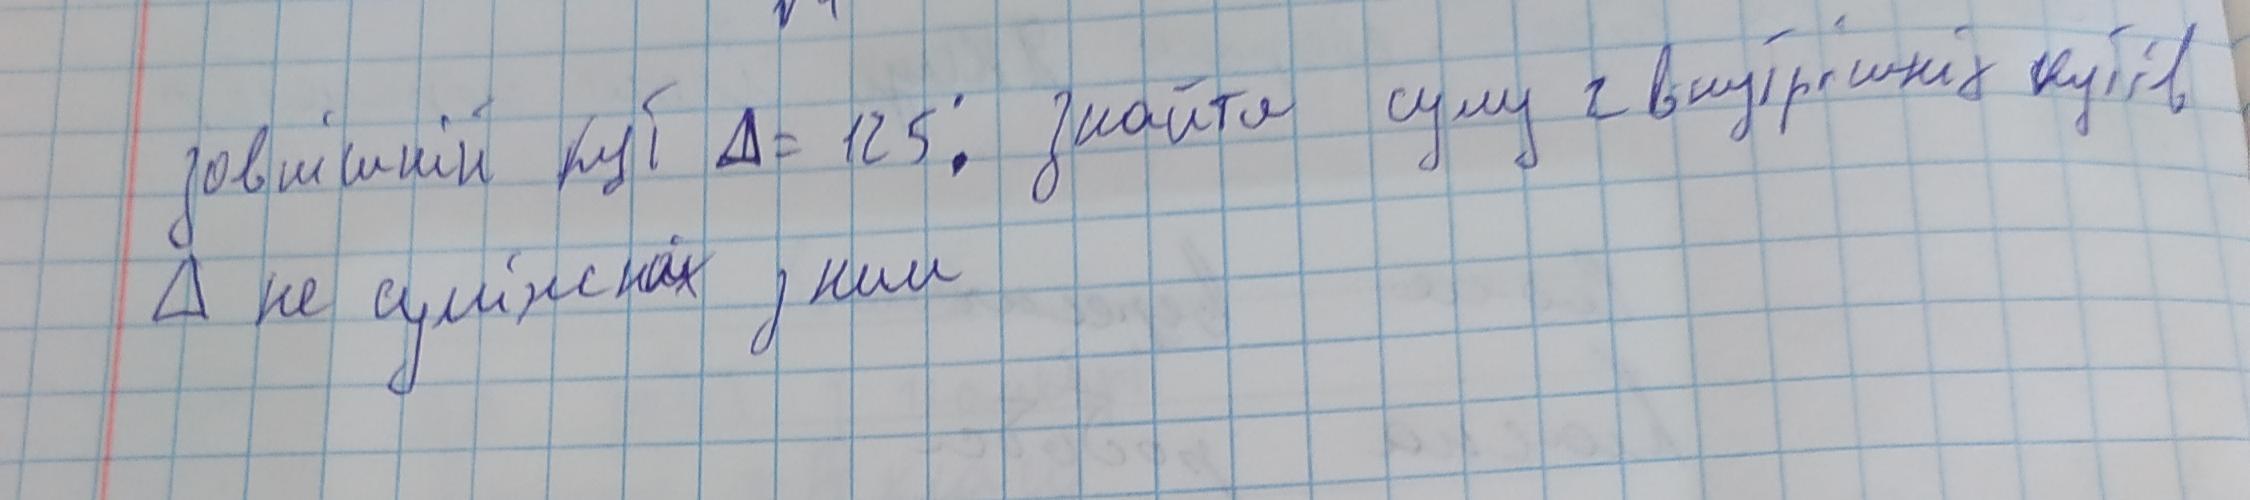 зовнішній кут Δ = 125°. Знайти суму 2 внутрішніх кутів
Δ не суміжних з ним